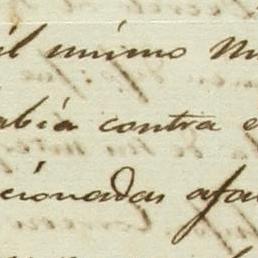 il mismo
abia contra e
cionadas afa